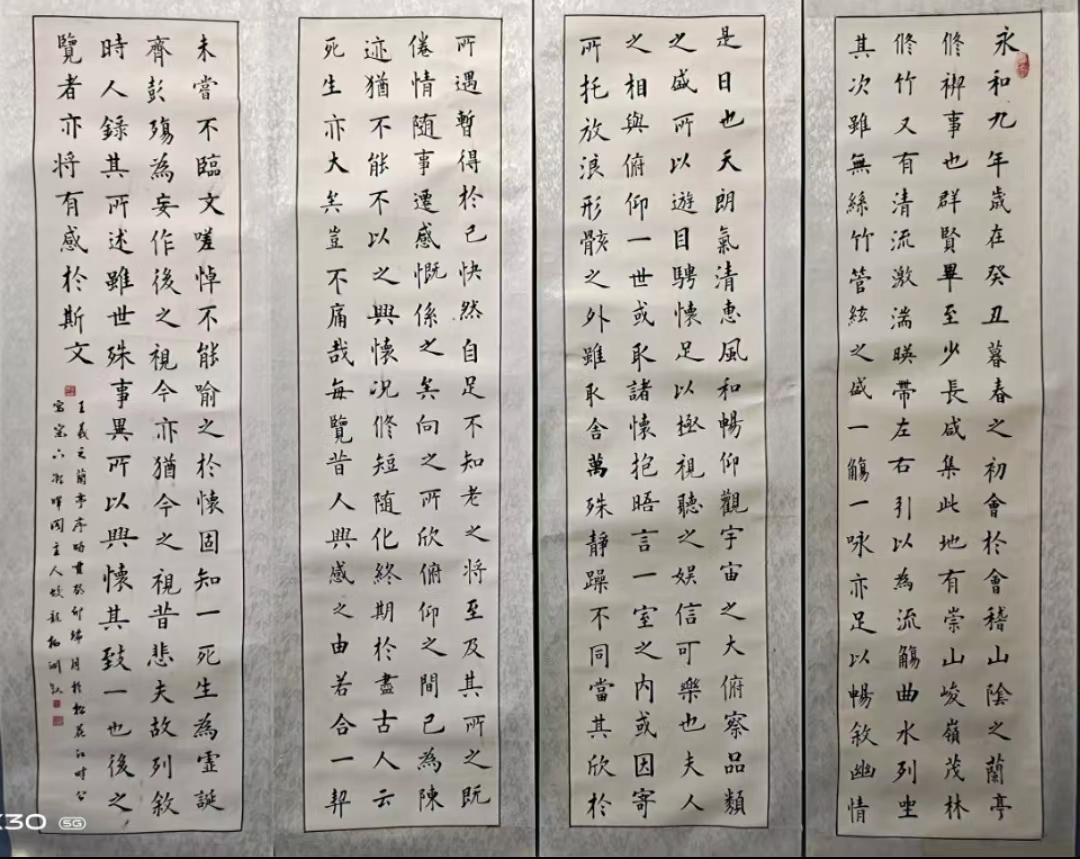 永和九年歲在癸丑暮春之初會於會稽山陰之蘭亭
修禊事也群賢畢至少長咸集此地有崇山峻嶺茂林
修竹又有清流激湍暎帶左右引以為流觴曲水列坐
其次雖無絲竹管絃之盛一觴一咏亦足以暢敘幽情
是日也天朗氣清惠風和暢仰觀宇宙之大俯察品類
之盛所以遊目騁懷足以極視聽之娛信可樂也夫人
之相與俯仰一世或取諸懷抱晤言一室之內或因寄
所托放浪形骸之外雖取舍萬殊靜躁不同當其欣於
所遇暫得於己快然自足不知老之將至及其所之既
倦情隨事遷感慨係之矣向之所欣俯仰之間已為陳
迹猶不能不以之興懷況修短隨化終期於盡古人云
死生亦大矣豈不痛哉每覽昔人興感之由若合一契
未嘗不臨文嗟悼不能喻之於懷固知一死生為虛誕
齊彭殤為妄作後之視今亦猶今之視昔悲夫故列敘
時人錄其所述雖世殊事異所以興懷其致一也後之
覽者亦将有感於斯文
王羲之蘭亭序時月於松花江时
主人
X30 5G